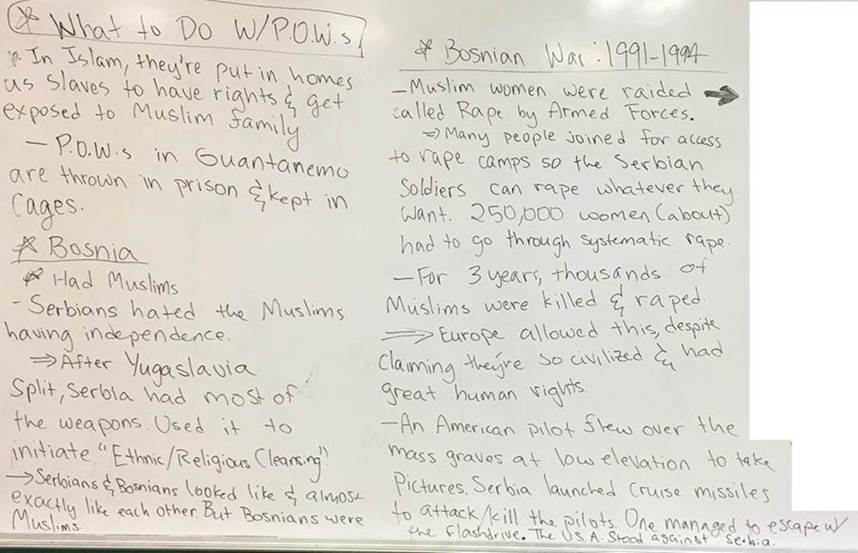 * What to Do W/P.O.W.s
* In Islam, they're put in homes
as slaves to have rights & get
exposed to Muslim family.
- P.O.W.s in Guantanemo
are thrown in prison & kept in
Cages.
* Bosnia
* Had Muslims
- Serbians hated the Muslims
having independence.
⇒ After Yugaslavia
Split, Serbia had most of
the weapons. Used it to
initiate "Ethnic/Religious Cleansing"
→ Serbians & Bosnians looked like & almost
exactly like each other. But Bosnians were
Muslims.
* Bosnian War: 1991-1994
- Muslim women were raided →
called Rape by Armed Forces.
⇒ Many people joined for access
to rape camps so the Serbian
Soldiers can rape whatever they
want. 250,000 women (about)
had to go through systematic rape.
- For 3 years, thousands of
Muslims were killed & raped.
⇒ Europe allowed this, despite
claiming they're so civilized & had
great human rights.
- An American pilot flew over the
mass graves at low elevation to take
Pictures. Serbia launched cruise missiles
to attack/kill the pilots. One managed to escape w/
the flashdrive. The U.S.A. stood against Serbia.